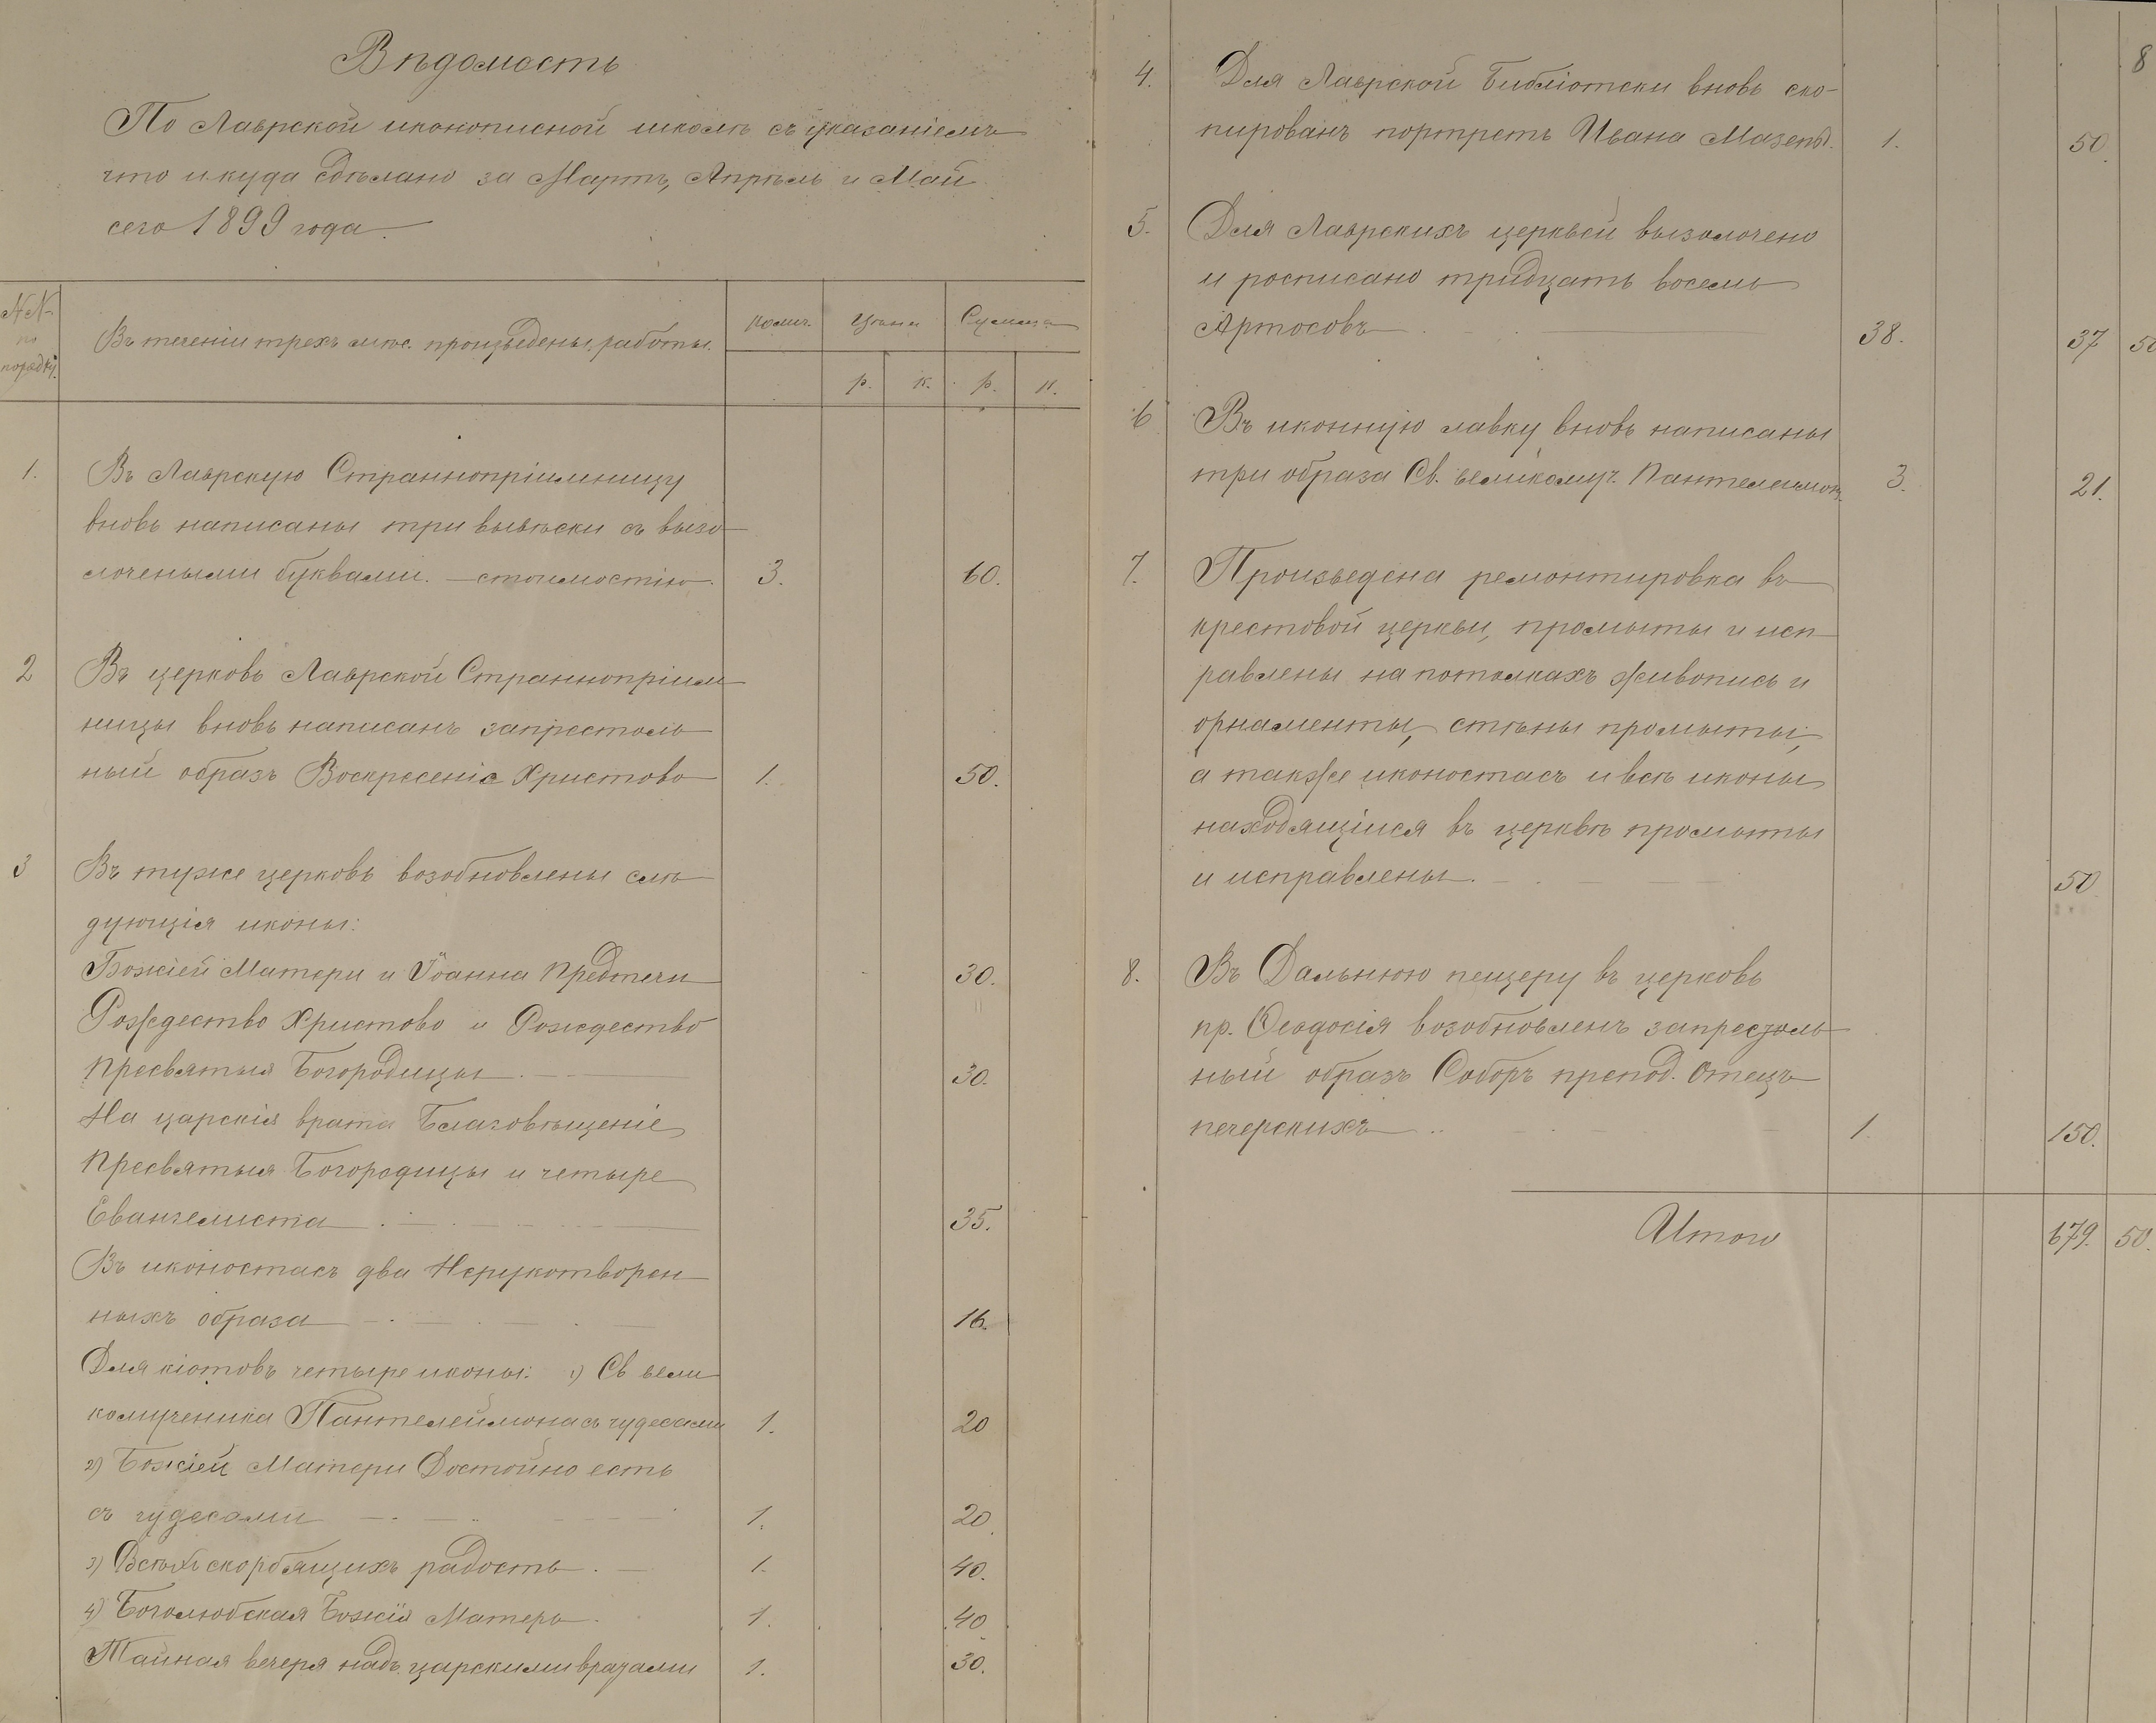 Вѣдомость
По Лаврской иконописной школѣ съ указаніемъ
что и куда сдѣлано за Мартъ, Апрѣль и Май
сего 1899 года.
№№ по порядку.
Въ теченіи трехъ мѣс. произведены работы.
Колич.
Цѣна
Сумма
р. к. р. к.
1. Въ Лаврскую Страннопріимницу
вновь написаны три вывѣски съ вызо
лочеными буквами. — стоимостію. 3. 60.
2 Въ церковь Лаврской Страннопріим
ницы вновь написанъ запрестоль
ный образъ Воскресенія Христово 1. 50.
3 Въ туже церковь возобновлены слѣ
дующія иконы:
Божіей Матери и Іоанна Предтечи 30.
Рождество Христово и Рождество
Пресвятыя Богородицы. 30.
На царскія врата Благовѣщеніе
Пресвятыя Богородицы и четыре
Евангелиста 35.
Въ иконостасъ два Нерукотворен
ныхъ образа 16.
Для кіотовъ четыре иконы: 1) Св вели
комученика Пантелеймона съ чудесами 1. 20
2) Божіей Матери Достойно есть
съ чудесами 1. 20.
3) Всѣхъ скорбящихъ радость. 1. 40.
4) Боголюбская Божія Матерь. 1. 40
Тайная вечеря надъ царскими вратами 1. 30.
8
4. Для Лаврской Библіотеки вновь ско-
пированъ портретъ Ивана Мазепы. 1. 50.
5. Для Лаврскихъ церквей вызолочено
и росписано тридцать восемь
Артосовъ 38. 37 50
6 Въ иконную лавку вновь написаны
три образа Св. великомуч. Пантелеимон. 3. 21.
7. Произведена ремонтировка въ
крестовой церкви, промыты и исп
равлены на потолкахъ живопись и
орнаменты, стѣны промыты,
а также иконостасъ и всѣ иконы
находящіися въ церквѣ промыты
и исправлены. 50
8. Въ Дальнюю пещеру въ церковь
пр. Ѳеодосія возобновленъ запрестоль
ный образъ Соборъ препод. Отецъ
печерскихъ 1. 150.
Итого 679. 50.